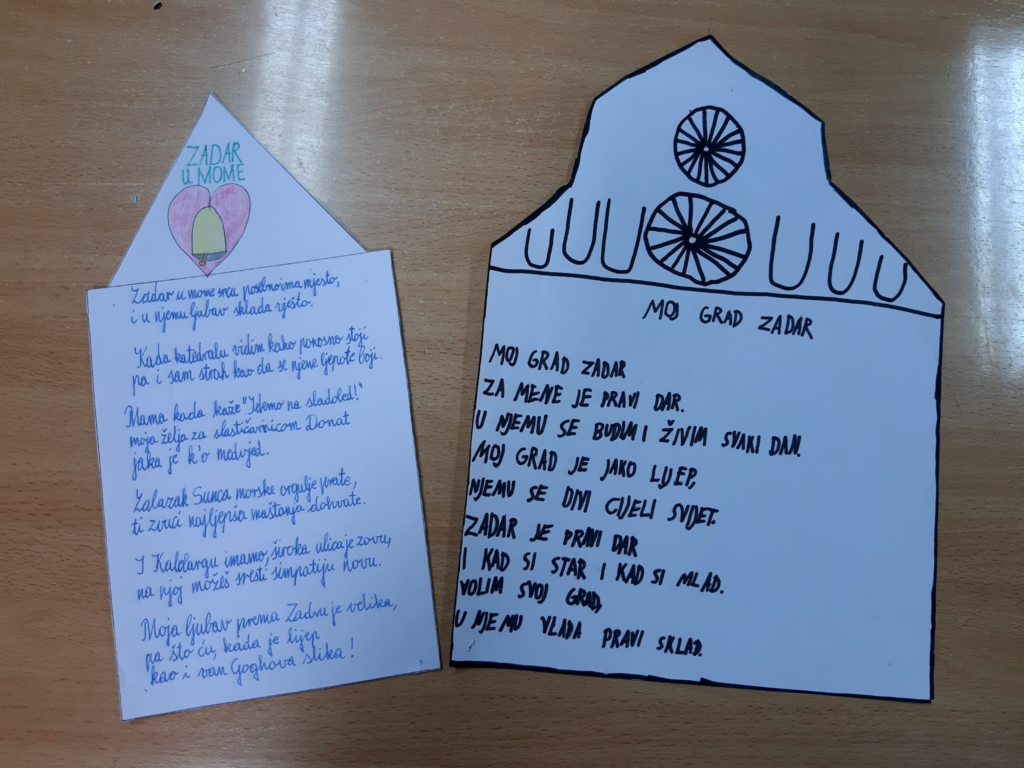 ZADAR
U MOME
Zadar u mome srcu posebno ima mjesto,
i u njemu ljubav sklada vješto.
Kada katedralu vidim kako ponosno stoji
pa i sam strah kao da se njene ljepote boji.
Mama kada kaže "Idemo na sladoled!"
moja želja za slastičarnicom Donat
jaka je k'o medvjed.
Zalazak Sunca morske orgulje prate,
ti zvuci najljepša maštanja dohvate.
I Kalelargu imamo, široka ulica je zovu,
na njoj možeš sresti simpatiju novu.
Moja ljubav prema Zadru je velika,
pa što ću, kada je lijep
kao i van Goghova slika!
MOJ GRAD ZADAR
MOJ GRAD ZADAR
ZA MENE JE PRAVI DAR.
U NJEMU SE BUDIM I ŽIVIM SVAKI DAN.
MOJ GRAD JE JAKO LIJEP,
NJEMU SE DIVI CIJELI SVIJET.
ZADAR JE PRAVI DAR
I KAD SI STAR I KAD SI MLAD.
VOLIM SVOJ GRAD,
U NJEMU VLADA PRAVI SKLAD.